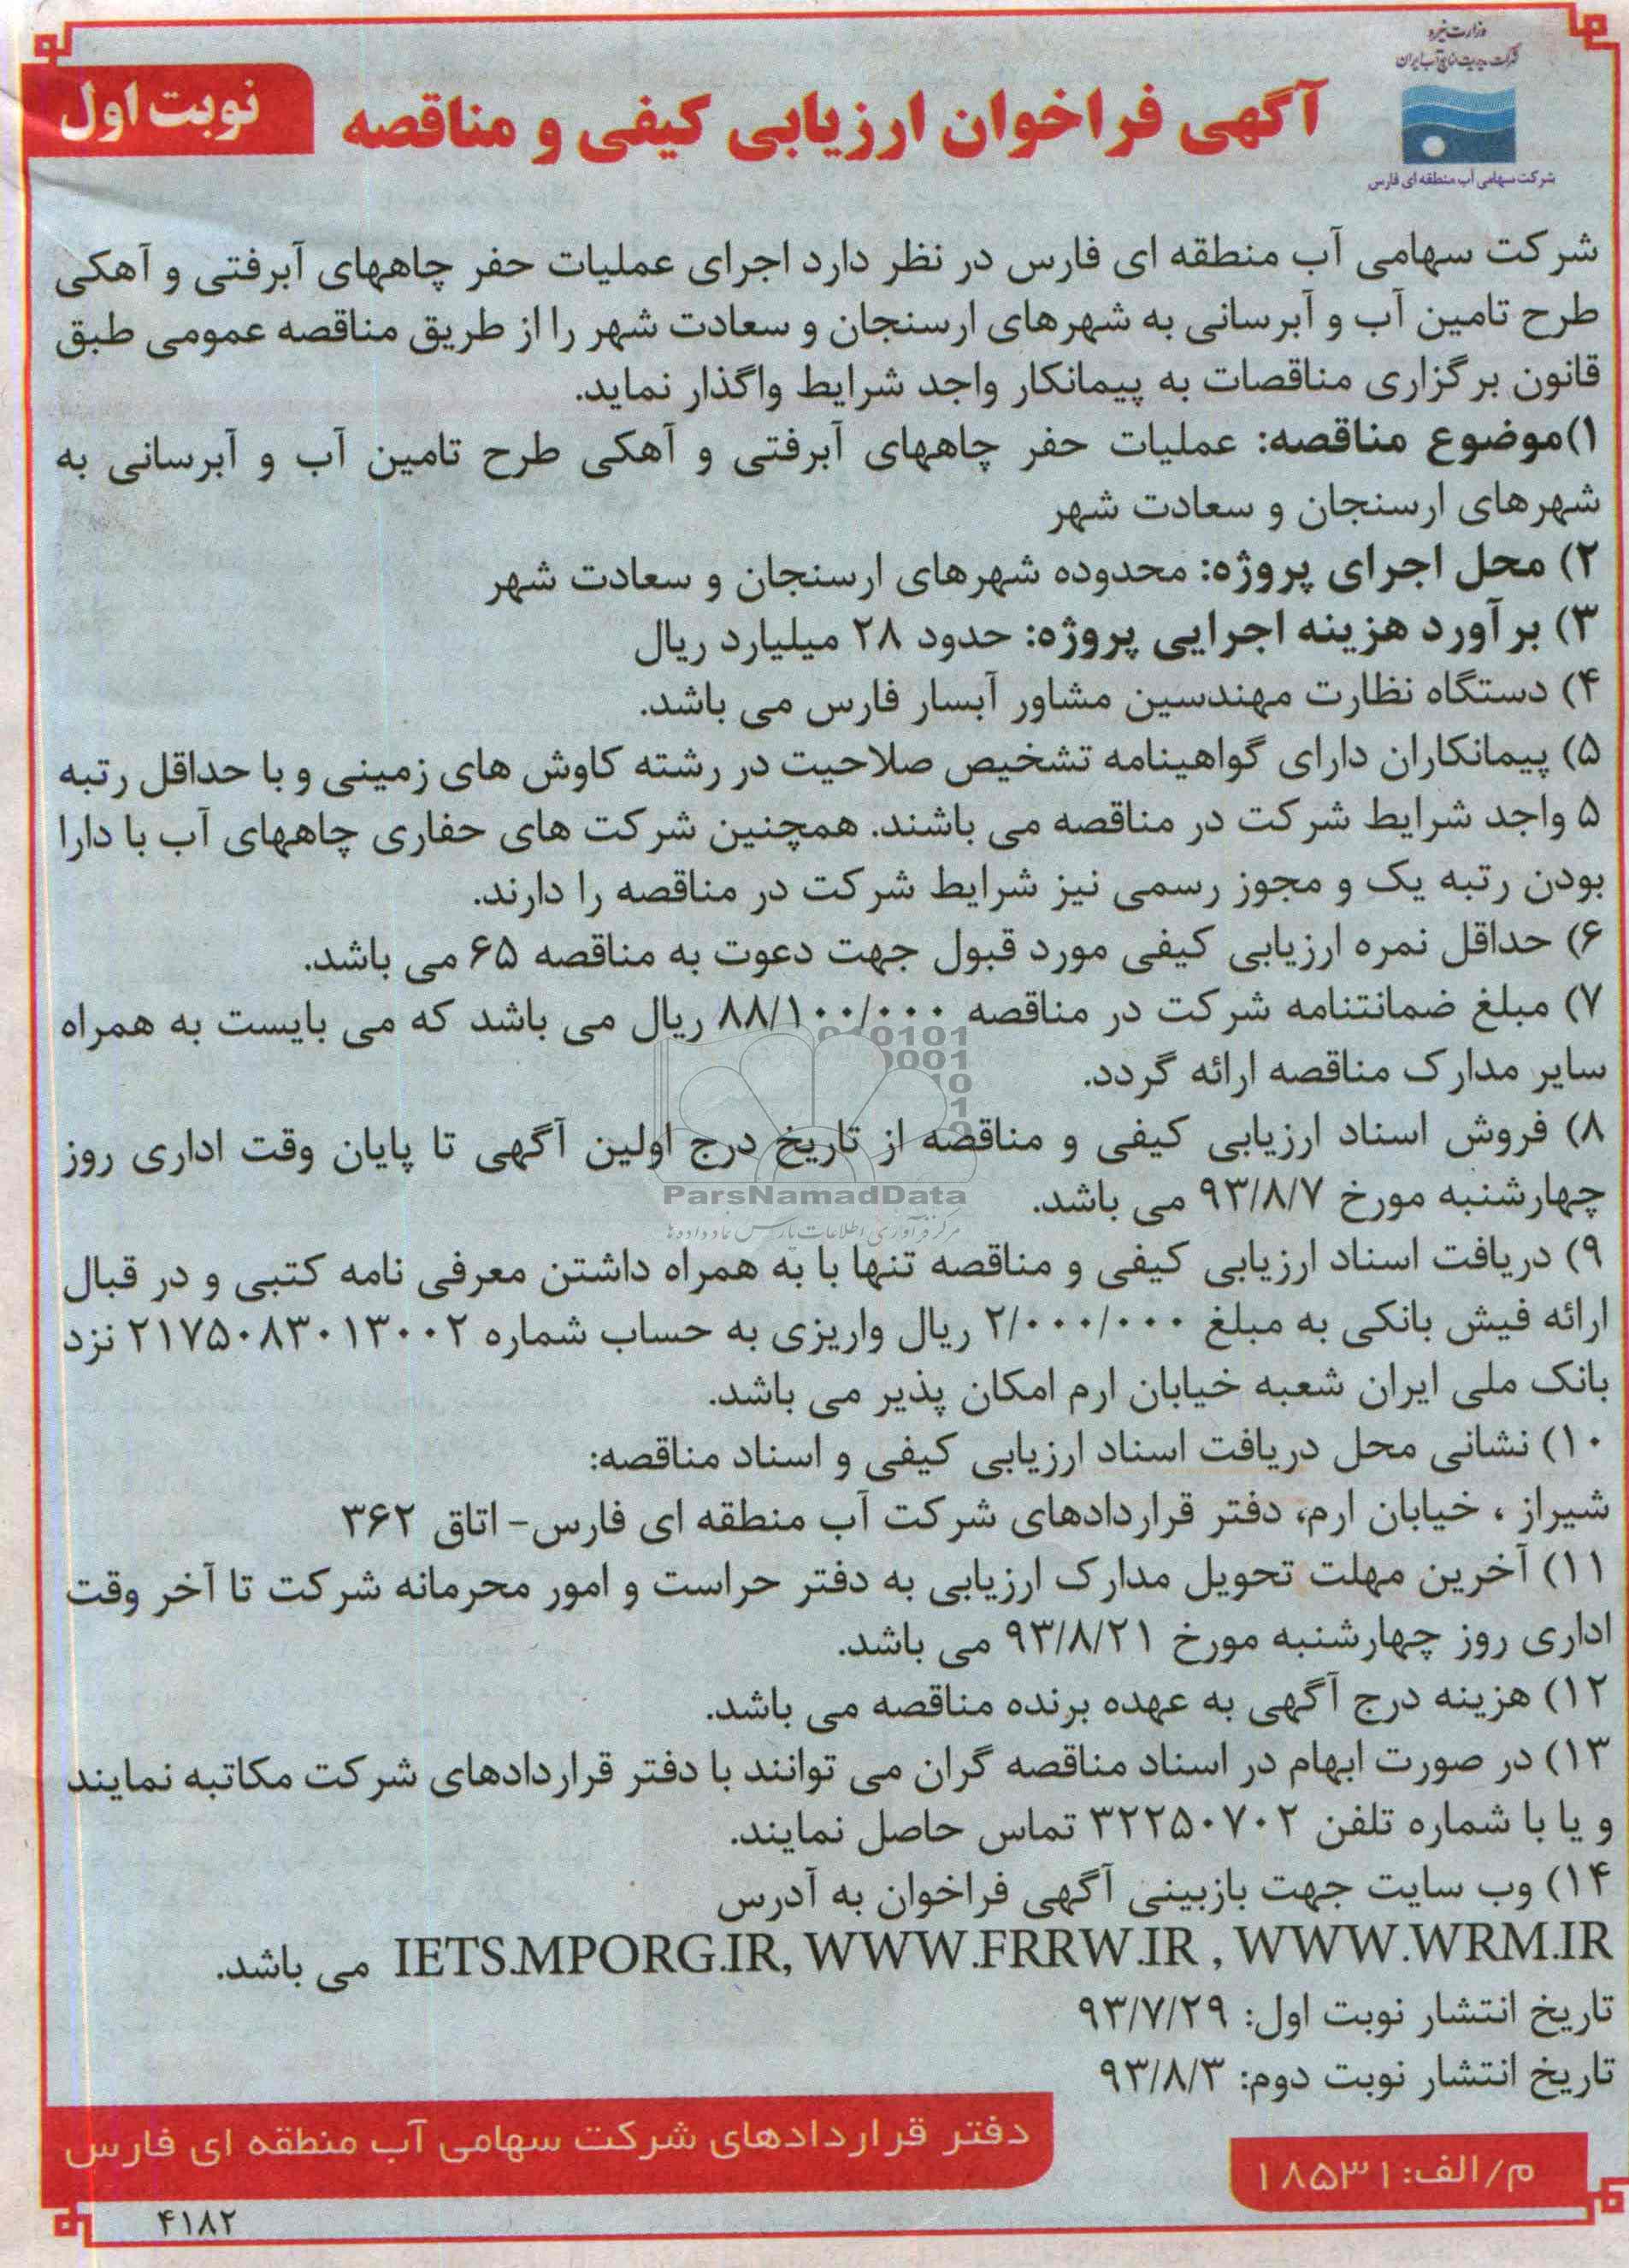 وزارت نیرو
شرکت مدیریت منابع آب ایران
شرکت سهامی آب منطقه ای فارس
آگهی فراخوان ارزیابی کیفی و مناقصه
نوبت اول
شرکت سهامی آب منطقه ای فارس در نظر دارد اجرای عملیات حفر چاههای آبرفتی و آهکی
طرح تامین آب و آبرسانی به شهرهای ارسنجان و سعادت شهر را از طریق مناقصه عمومی طبق
قانون برگزاری مناقصات به پیمانکار واجد شرایط واگذار نماید.
۱)موضوع مناقصه: عملیات حفر چاههای آبرفتی و آهکی طرح تامین آب و آبرسانی به
شهرهای ارسنجان و سعادت شهر
۲) محل اجرای پروژه: محدوده شهرهای ارسنجان و سعادت شهر
۳) برآورد هزینه اجرایی پروژه: حدود ۲۸ میلیارد ریال
۴) دستگاه نظارت مهندسین مشاور آبسار فارس می باشد.
۵) پیمانکاران دارای گواهینامه تشخیص صلاحیت در رشته کاوش های زمینی و با حداقل رتبه
۵ واجد شرایط شرکت در مناقصه می باشند. همچنین شرکت های حفاری چاههای آب با دارا
بودن رتبه یک و مجوز رسمی نیز شرایط شرکت در مناقصه را دارند.
۶) حداقل نمره ارزیابی کیفی مورد قبول جهت دعوت به مناقصه ۶۵ می باشد.
۷) مبلغ ضمانتنامه شرکت در مناقصه ۸۸/۱۰۰/۰۰۰ ریال می باشد که می بایست به همراه
سایر مدارک مناقصه ارائه گردد.
۸) فروش اسناد ارزیابی کیفی و مناقصه از تاریخ درج اولین آگهی تا پایان وقت اداری روز
چهارشنبه مورخ ۹۳/۸/۷ می باشد.
ParsNamadData
مرکز فرآوری اطلاعات پارس نماد داده ها
۹) دریافت اسناد ارزیابی کیفی و مناقصه تنها با به همراه داشتن معرفی نامه کتبی و در قبال
ارائه فیش بانکی به مبلغ ۲/۰۰۰/۰۰۰ ریال واریزی به حساب شماره ۲۱۷۵۰۸۳۰۱۳۰۰۲ نزد
بانک ملی ایران شعبه خیابان ارم امکان پذیر می باشد.
۱۰) نشانی محل دریافت اسناد ارزیابی کیفی و اسناد مناقصه:
شیراز ، خیابان ارم، دفتر قراردادهای شرکت آب منطقه ای فارس- اتاق ۳۶۲
۱۱) آخرین مهلت تحویل مدارک ارزیابی به دفتر حراست و امور محرمانه شرکت تا آخر وقت
اداری روز چهارشنبه مورخ ۹۳/۸/۲۱ می باشد.
۱۲) هزینه درج آگهی به عهده برنده مناقصه می باشد.
۱۳) در صورت ابهام در اسناد مناقصه گران می توانند با دفتر قراردادهای شرکت مکاتبه نمایند
و یا با شماره تلفن ۳۲۲۵۰۷۰۲ تماس حاصل نمایند.
۱۴) وب سایت جهت بازبینی آگهی فراخوان به آدرس
IETS.MPORG.IR, WWW.FRRW.IR , WWW.WRM.IR می باشد.
تاریخ انتشار نوبت اول: ۹۳/۷/۲۹
تاریخ انتشار نوبت دوم: ۹۳/۸/۳
دفتر قراردادهای شرکت سهامی آب منطقه ای فارس
م/الف: ۱۸۵۳۱
۴۱۸۲